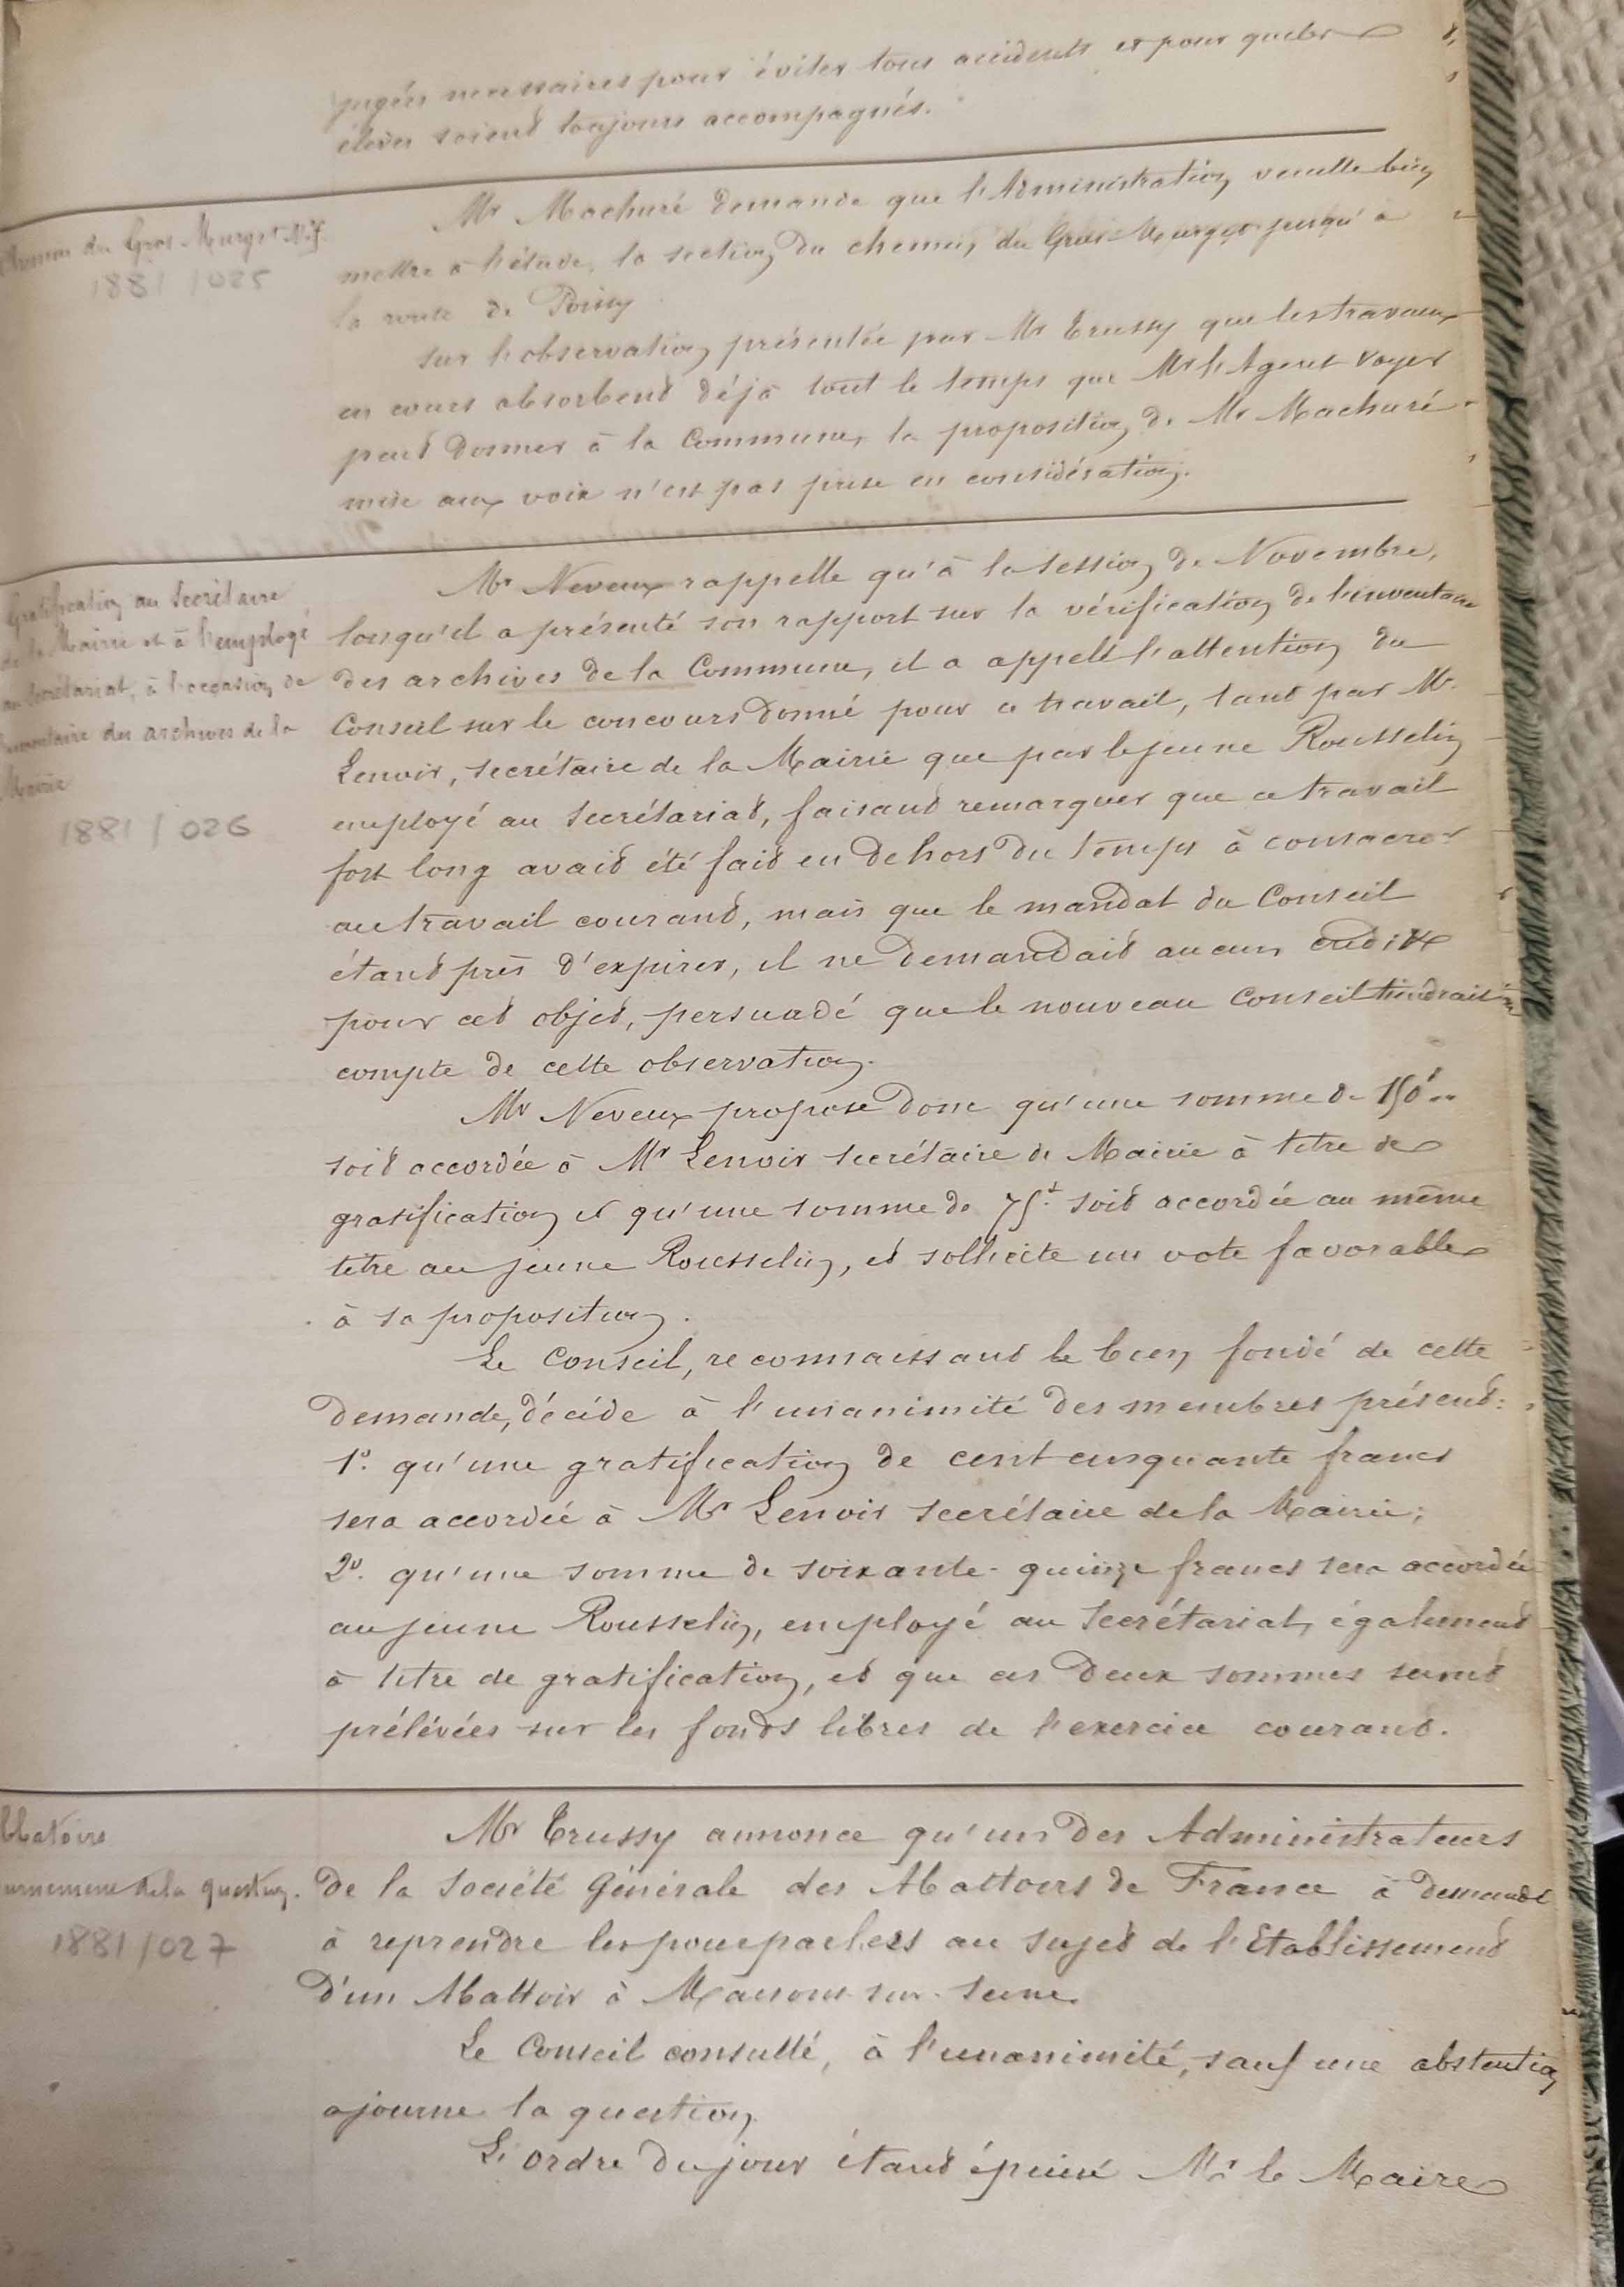 jugées necessaires pour éviter tous accidents et pour que les
élèves soient toujours accompagnés.
Chemin du Gros Murget N.
1881 / 025
Mr Machuré demande que l'Administration veuille bien
mettre à l'étude, la section du chemin, du Gros-Murget jusqu'à
la route de Poissy
sur l'observation, présentée par Mr Trussy que les travaux
en cours absorbent déjà tout le temps que Mr l'Agent Voyer
peut donner à la Commune, la proposition de Mr Machuré
mise aux voix n'est pas prise en considération.
Gratification au Secrétaire
de la Mairie et à l'employé
au Secrétariat, à l'occasion de
l'inventaire des archives de la
Mairie
1881 / 026
Mr Neveux rappelle qu'à la session de Novembre,
lorsqu'il a présenté son rapport sur la vérification de l'inventaire
des archives de la Commune, il a appelé l'attention du
Conseil sur le concours donné pour ce travail, tant par Mr
Lenoir, secrétaire de la Mairie que par le jeune Rousselin
employé au Secrétariat, faisant remarquer que ce travail
fort long avait été fait en dehors du temps à consacrer
au travail courant, mais que le mandat du Conseil
étant près d'expirer, il ne demandait aucun crédit
pour cet objet, persuadé que le nouveau Conseil tiendrait
compte de cette observation.
Mr Neveux propose donc qu'une somme de 150f..
soit accordée à Mr Lenoir secrétaire de Mairie à titre de
gratification et qu'une somme de 75f. soit accordée au même
titre au jeune Rousselin, et sollicite un vote favorable
à sa proposition.
Le Conseil, reconnaissant le bien fondé de cette
demande, décide à l'unanimité des membres présents:
1º. qu'une gratification de cent cinquante francs
sera accordée à Mr Lenoir secrétaire de la Mairie;
2º. qu'une somme de soixante-quinze francs sera accordée
au jeune Rousselin, employé au Secrétariat, également
à titre de gratification, et que ces deux sommes seront
prélévées sur les fonds libres de l'exercice courant.
Abbatoirs
ajournement de la question.
1881 / 027
Mr Trussy annonce qu'un des Administrateurs
de la Société Générale des Abattoirs de France a demandé
à reprendre les pourparlers au sujet de l'Etablissement
d'un Abattoir à Maisons-sur-Seine.
Le Conseil consulté, à l'unanimité, sauf une abstention
ajourne la question.
L'ordre du jour étant épuisé Mr le Maire